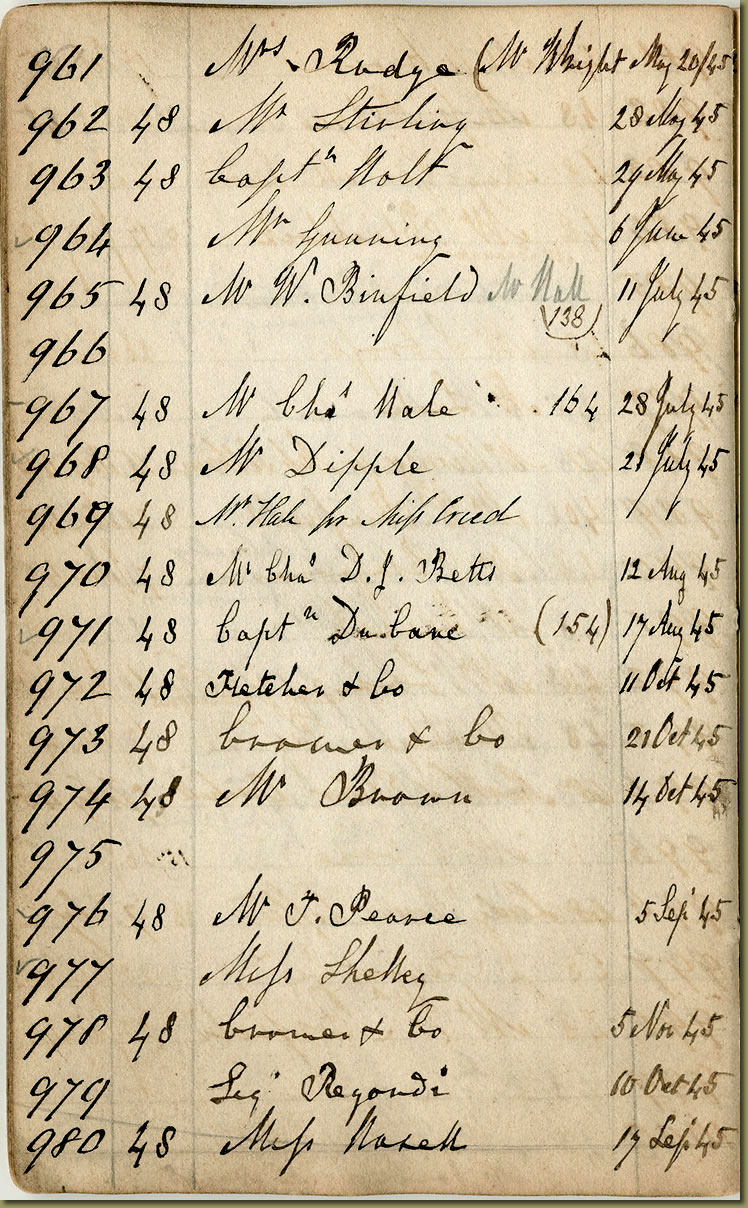 961 Mrs. Rudge (Mr Wright May 20/45
962 48 Mr Stirling 28 May 45
963 48 Captn Holt 29 May 45
964 Mr Gunning 6 June 45
965 48 Mr W. Binfield Mr Hall 11 July 45
138
966
967 48 Mr Chas Hale 164 28 July 45
968 48 Mr Dipple 21 July 45
969 48 Mr. Hale for Miss Creed
970 48 Mr Chas D. J. Betts 12 Aug 45
971 48 Captn Du Cane (154) 17 Aug 45
972 48 Fletcher & Co 11 Oct 45
973 48 Cramer & Co 21 Oct 45
974 48 Mr Brown 14 Oct 45
975
976 48 Mr T. Pearce 5 Sep 45
977 Miss Shelley
978 48 Cramer & Co 5 Nov 45
979 Sigr Regondi 10 Oct 45
980 48 Miss 17 Sep 45